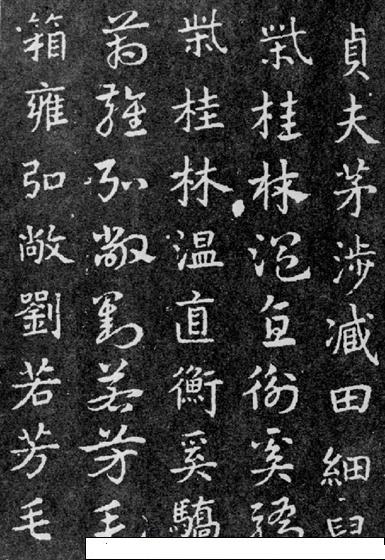 貞夫茅涉臧田細
柴桂林溫直衡奚驕
柴桂林溫直衡奚驕
箱雍弘敞劉若芳毛
箱雍弘敞劉若芳毛